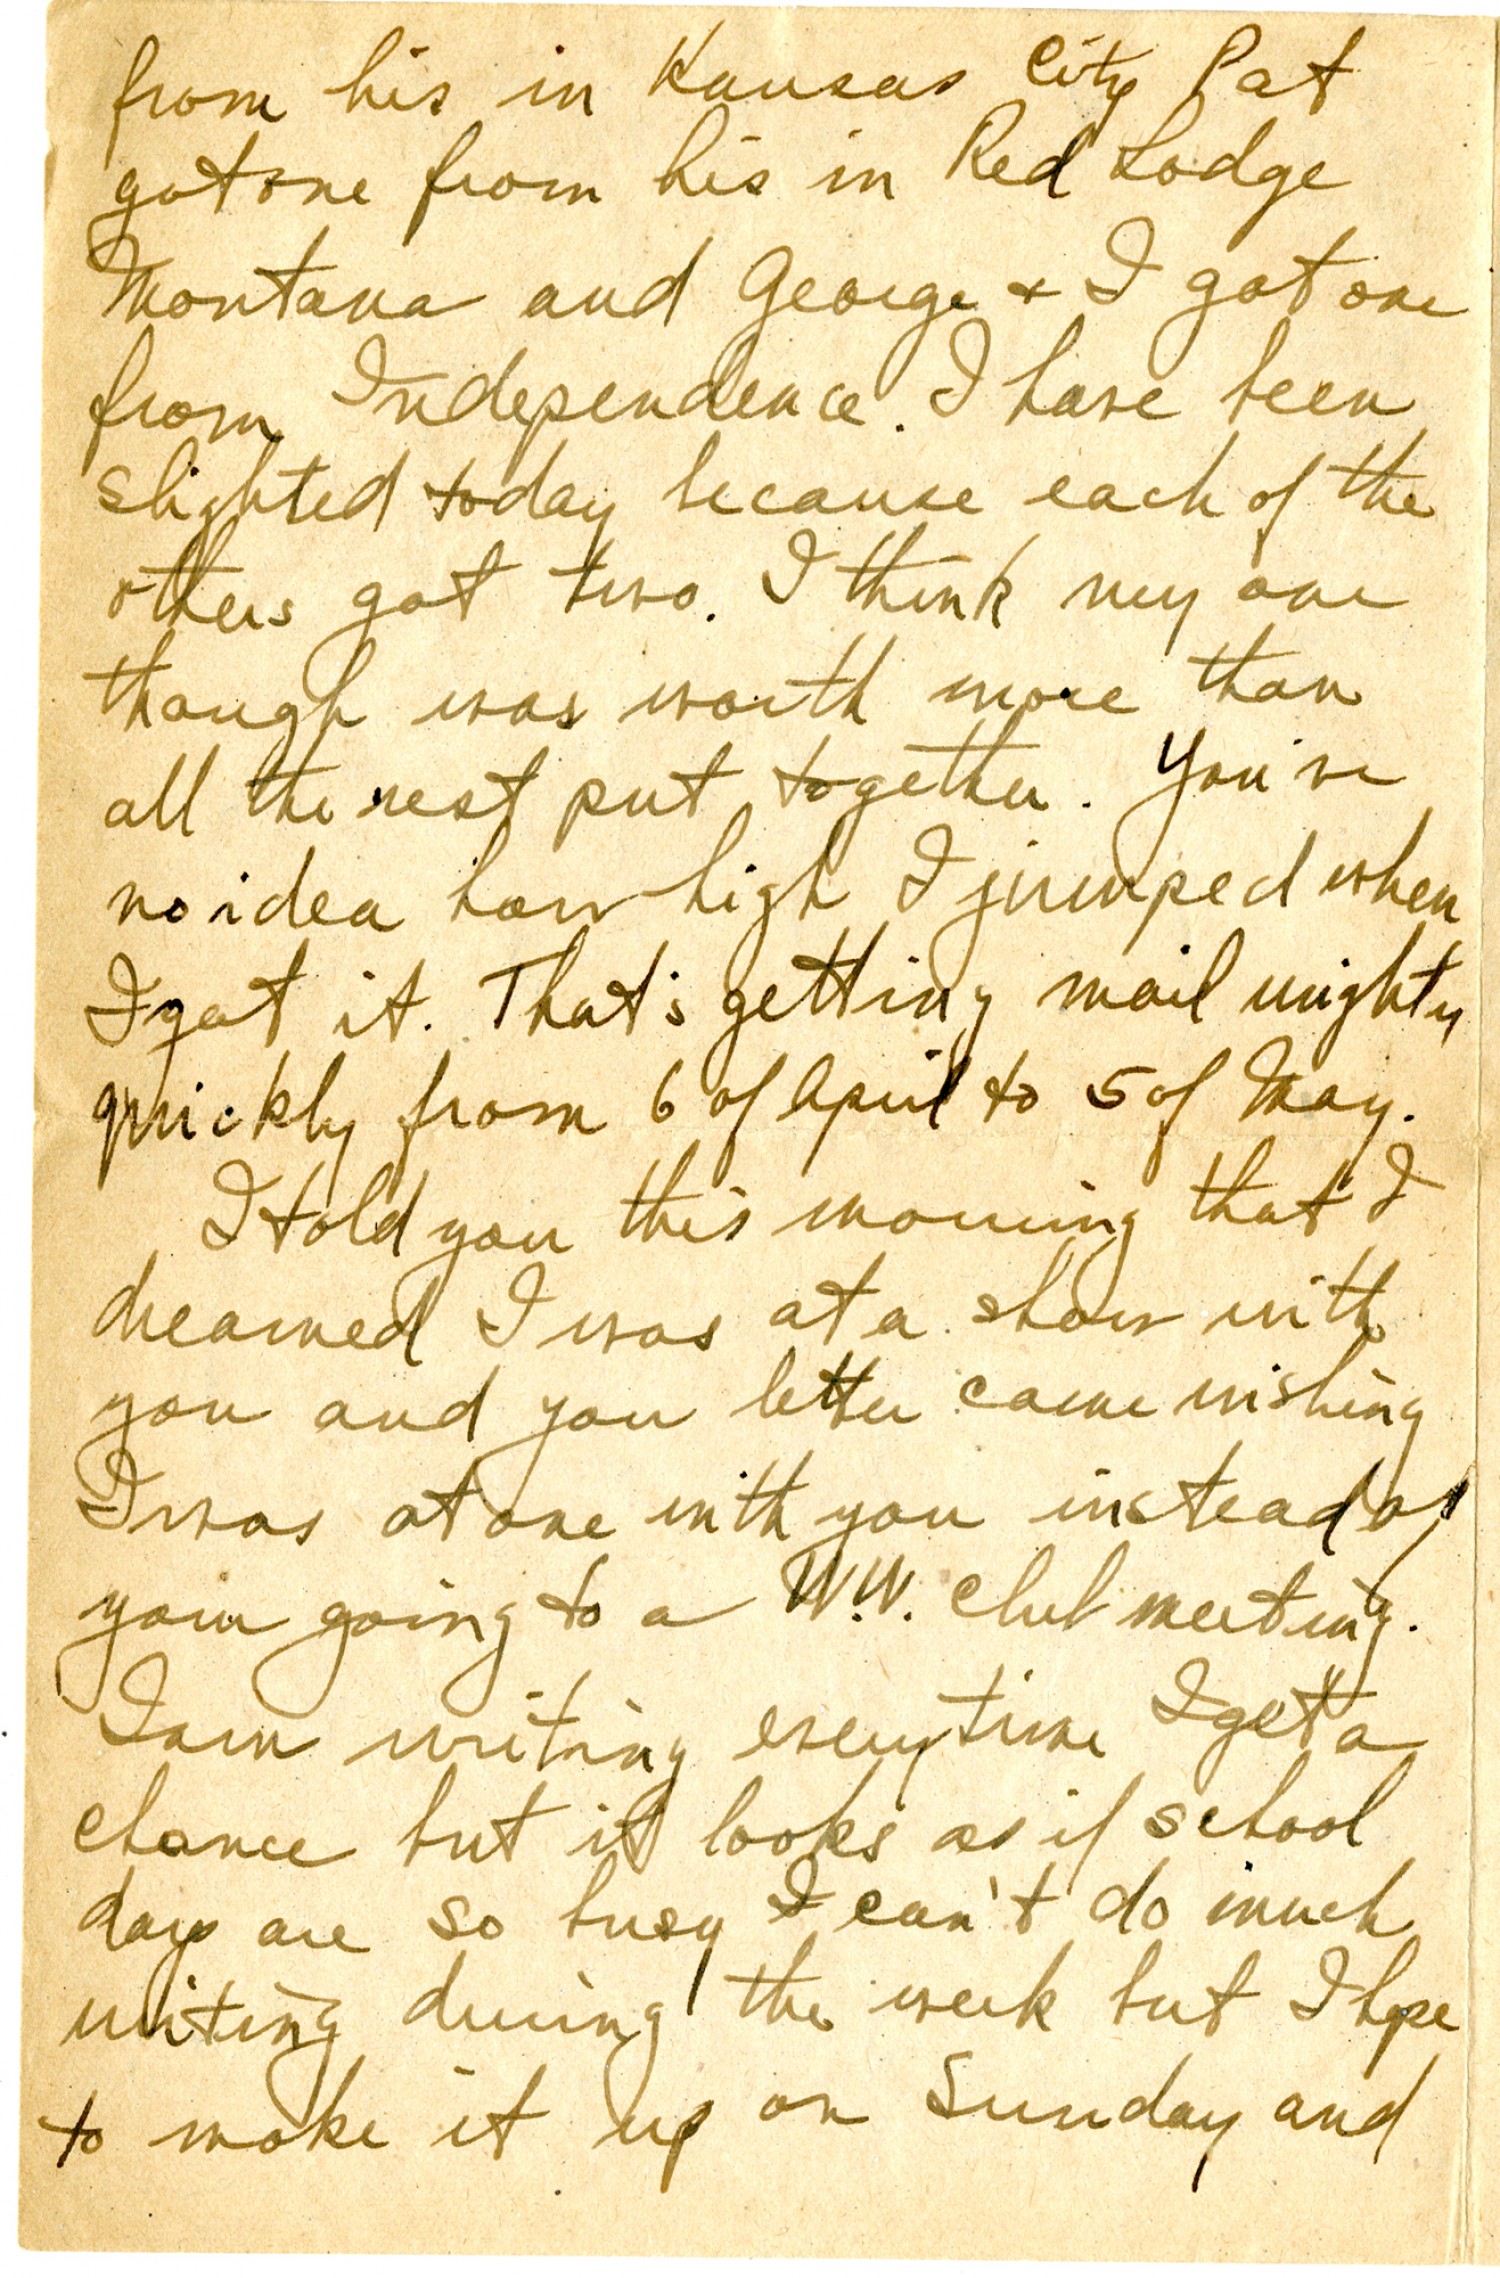 from his in Kansas City Pat
got one from his in Red Lodge
Montana and George + I got one
from Independence. I have been
slighted today because each of the
others got two. I think my one
though was worth more than
all the rest put together. You've
no idea how high I jumped when
I got it. That's getting mail mighty
quickly from 6 of April to 5 of May.
I told you this morning that I
dreamed I was at a show with
you and you letter came wishing
I was at one with you instead of
your going to a W.W. Club meeting.
I am writing everytime I get a
chance but it looks as if school
days are so busy I can't do much
writing during the week but I hope
to make it up on Sunday and